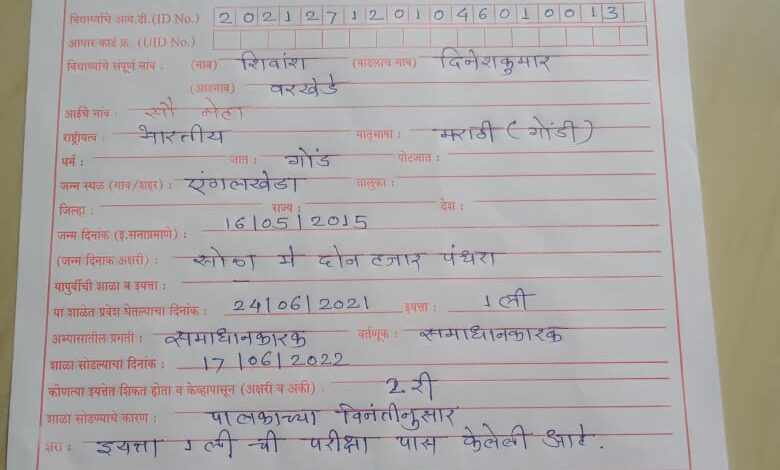 विद्यार्थ्याचे आय.डी.(ID No.) 2021271201046010013
आधार कार्ड क्र. (UID No.)
विद्यार्थ्याचे संपूर्ण नांव : (नाव) शिवांश (वडिलांचे नांव) दिनेशकुमार
(आडनाव) वरखेडे
आईचे नांव : सौ
राष्ट्रीयत्व : भारतीय मातृभाषा : मराठी (गोंडी)
धर्म : जात : गोंड पोटजात :
जन्म स्थळ (गांव/शहर) : एंगलखेडा तालुका :
जिल्हा : राज्य : देश :
जन्म दिनांक (इ.सनाप्रमाणे) : 16/05/2015
(जन्म दिनांक अक्षरी) : सोळा मे दोन हजार पंधरा
यापुर्वीची शाळा व इयत्ता :
या शाळेत प्रवेश घेतल्याचा दिनांक : 24/06/2021 इयत्ता : 1 ली
अभ्यासातील प्रगती : समाधानकारक वर्तणूक : समाधानकारक
शाळा सोडल्याचा दिनांक : 17/06/2022
कोणत्या इयत्तेत शिकत होता व केव्हापासून (अक्षरी व अंकी) : 2 री
शाळा सोडण्याचे कारण : पालकाच्या विनंतीनुसार
शेरा : इयत्ता 1 ली ची परीक्षा पास केलेली आहे.